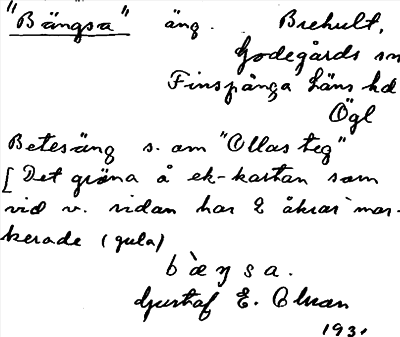 "Bängsa" äng. Brehult,
Godegårds sn
Finspånga läns hd
Ögl
Betesäng s. om "Ollas teg"
[Det gröna å ek-kartan som
vid v. sidan har 2 åkrar mar-
kerade (gula)
bàŋsa.
Gustaf E. Olson
193.